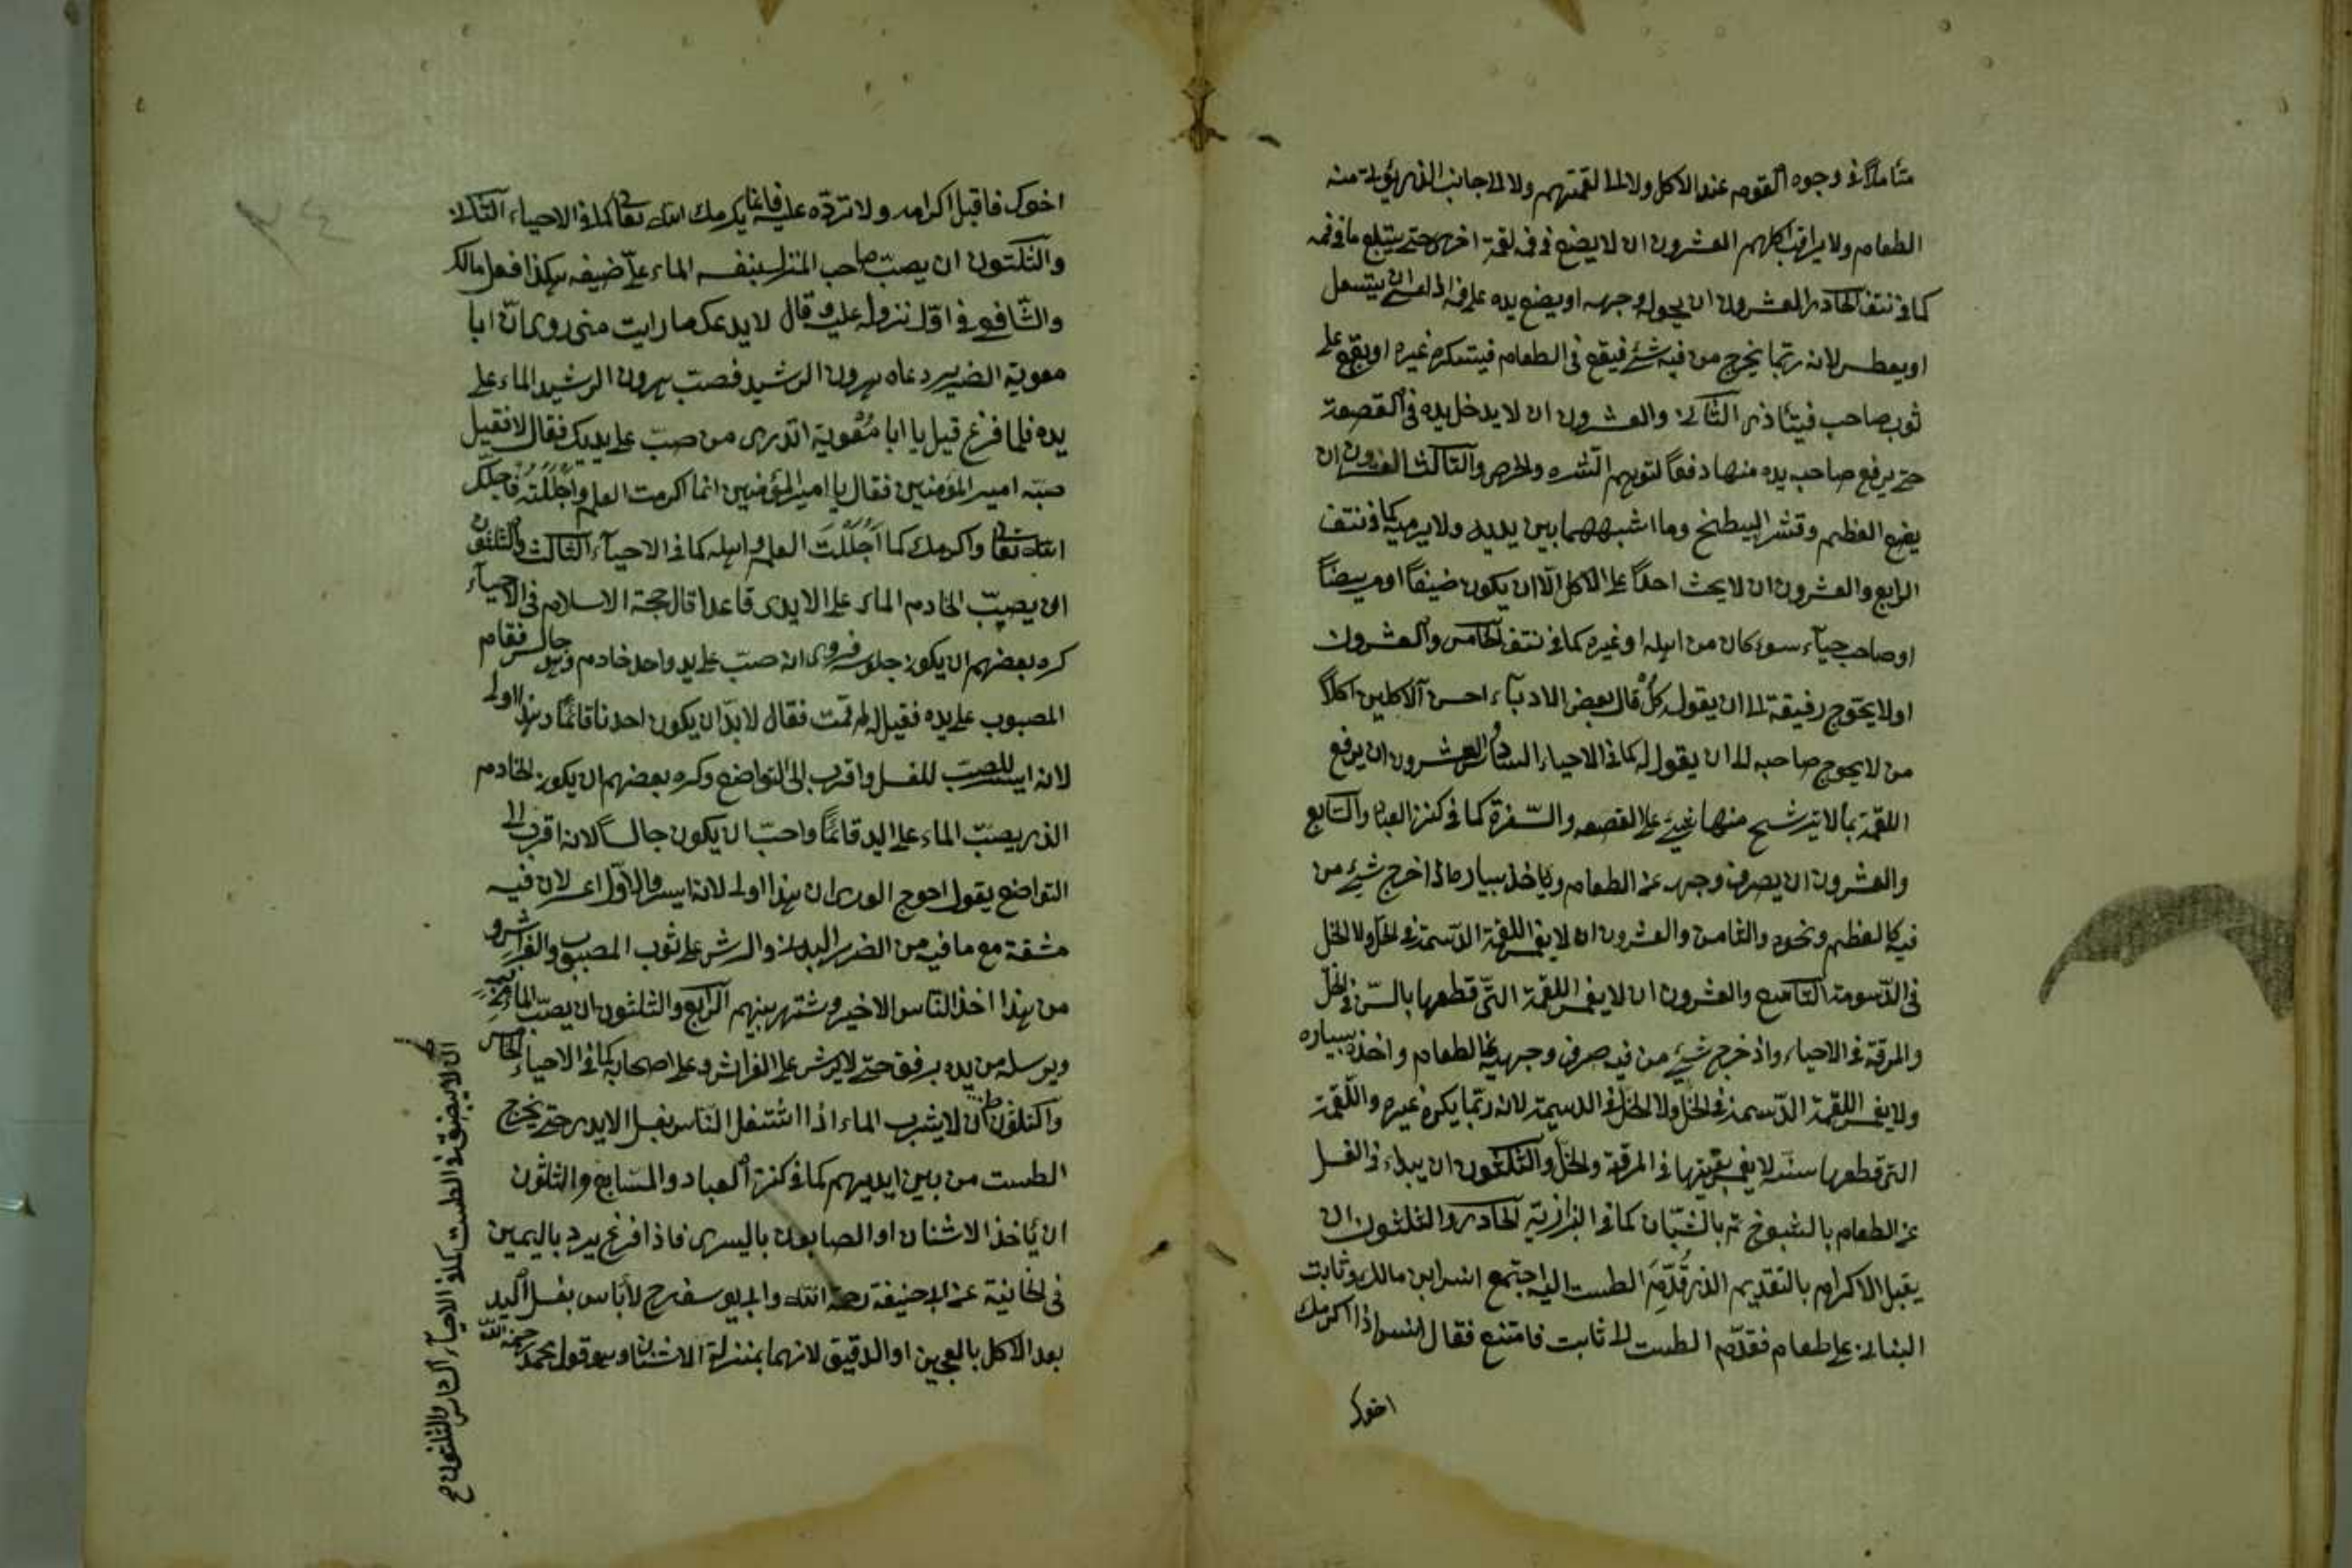 متأملا في وجوه القوم عند الاكل ولا الى لقمتهم ولا الى جانب الذي يؤتى منه
الطعام ولا يراقب اكلهم العشرون ان لا يضع في فمه لقمة اخرى حتى يبتلع ما في فمه
كما في نتف الحادي والعشرون ان يحول وجهه او يضع يده على فمه اذا اراد ان يتسعل
او يعطس لانه ربما يخرج من فيه شئ فيقع في الطعام فيستكره غيره او يقع على
ثوب صاحبه فيتأذى الثاني والعشرون ان لا يدخل يده في القصعة
حتى يرفع صاحبه يده منها دفعا لتوهم الشره والحرص والثالث والعشرون ان
يضع العظم وقشر البطيخ وما اشبههما بين يديه ولا يرميه كما في نتف
الرابع والعشرون ان لا يحث احدا على الاكل الا ان يكون ضيفا او مريضا
او صاحب حياء سوء كان من اهله او غيره كما في نتف الخامس والعشرون
اولا يحوج رفيقه الى ان يقول له كل قال بعض الادباء احسن الآكلين اكلا
من لا يحوج صاحبه الى ان يقول له كما في الاحياء السادس والعشرون ان يرفع
اللقمة بما لا يترشح منها شئ على القصعة والسفرة كما في كنز العباد والسابع
والعشرون ان يصرف وجهه عن الطعام ويأخذ بيساره اذا خرج شئ من
فيه كالعظم ونحوه والثامن والعشرون ان لا يغمس اللقمة الدسمة في الخل ولا الخل
في الدسومة التاسع والعشرون ان لا يغمس اللقمة التي قطعها بالسن في الخل
والمرقة في الاحياء واذ خرج شئ من فيه صرف وجهه عن الطعام واخذه بيساره
ولا يغمس اللقمة الدسمة في الخل ولا الخل في الدسمة لانه ربما يكره غيره واللقمة
التي قطعها سنه لا يغمس بقيتها في المرقة والخل والثلثون ان يبداء في الغسل
عن الطعام بالشيوخ ثم بالشبان كما في البزازية الحادي والثلثون ان
يقبل الاكرام بالتقديم الذي قدم الطست اليه اجتمع انس ابن مالك وثابت
البناني على طعام فقدم الطست الى ثابت فامتنع فقال انس اذا اكرمك
اخوك
اخوك فاقبل اكرامه ولا ترده عليه فانما يكرمك الله تعالى كما في الاحياء الثاني
والثلثون ان يصب صاحب المنزل بنفسه الماء على ضيفه هكذا فعل مالك
والشافعي في اول نزوله عليه وقال لا يدعك ما رايت مني روى ان ابا
معوية الضرير دعاه هرون الرشيد فصب هرون الرشيد الماء على
يده فلما فرغ قيل يا ابا معوية اتدرى من صب على يديك فقال لا فقيل
صبه امير المؤمنين فقال يا امير المؤمنين انما اكرمت العلم واجللته فاجلك
الله تعالى واكرمك كما اجللت العلم واهله كما في الاحياء الثالث والثلثون
ان يصب الخادم الماء على الايدي قاعدا قال حجة الاسلام في الاحياء
كره بعضهم ان يكون جلوسه فروى انه صب على يد واحد خادم وهو جالس فقام
المصبوب على يده فقيل له لم قمت فقال لا بد ان يكون احدنا قائما وهذا اولى
لانه ايسر للصب للغسل واقرب الى التواضع وكره بعضهم ان يكون الخادم
الذي يصب الماء على اليد قائما واحب ان يكون جالسا لانه اقرب الى
التواضع يقول احوج الورى ان هذا اولى لانه ايسر والاول اعسر لان فيه
مشقة مع ما فيه من الضرر البدنى والرش على ثوب المصبوب والفراش و
من هذا اخذ الناس الاخير وشتهر بينهم الرابع والثلثون ان يصب الماء
ويرسله من يده برفق حتى لا يرش على الفراش وعلى اصحابه كما في الاحياء الخامس
والثلثون ان لا يشرب الماء اذا اشتغل الناس بغسل الايدي حتى يخرج
الطست من بين ايديهم كما في كنز العباد والسابع والثلثون
ان يأخذ الاشنان او الصابون باليسرى فاذا فرغ يرد باليمين
في الخانية عن ابي حنيفة رحمه الله وابي يوسف رح لا بأس بغسل اليد
بعد الاكل بالعجين او الدقيق لانهما بمنزلة الاشنان وهو قول محمد رحمه الله
ان لا يبصق في الطست كما في الاحياء السادس والثلثون صح
٢٤